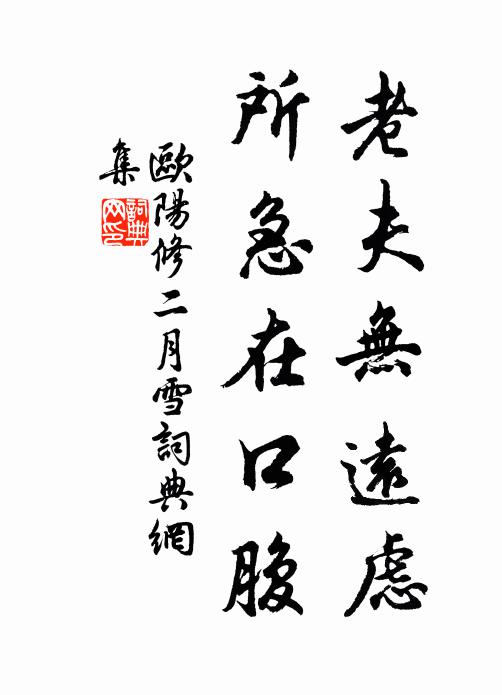 老夫無遠慮
所急在口腹
歐陽修二月雪詞典網
集
詞典
网印